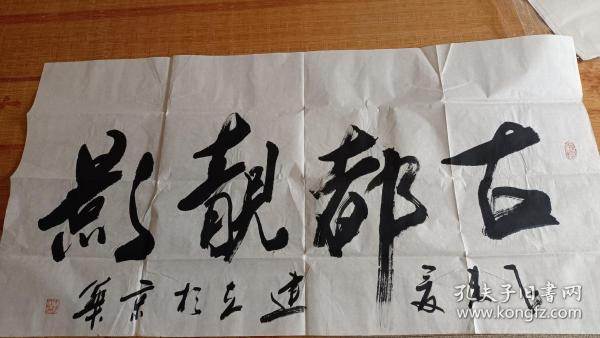 古都靓影
建立於京華
孔夫子旧书网
www.kongfz.com